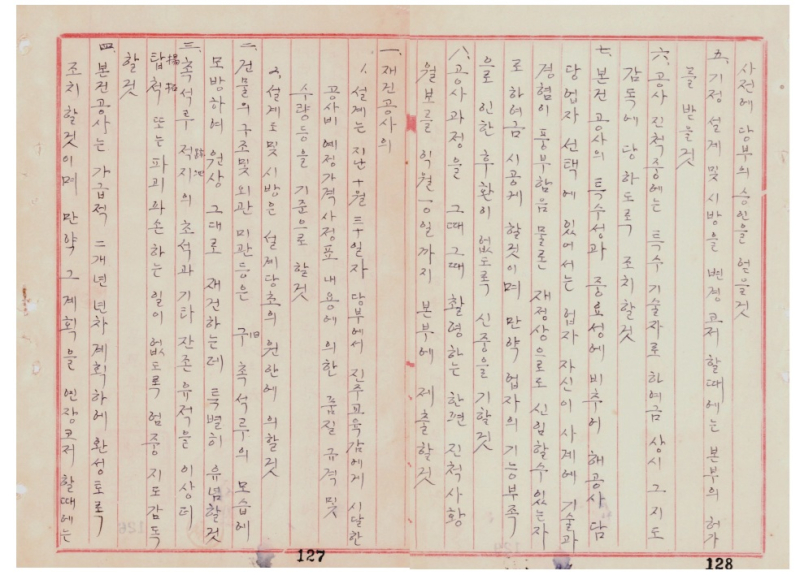 一. 재건공사의
1. 설계는 지난 十월 三十일자 당부에서 진주교육감에게 시달한
공사비 예정가격 사정표 내용에 의한 품질 규격 및
수량등을 기준으로 할것
2. 설계도 및 시방은 설계당초의 원안에 의할것
二. 건물의 구조및 외관 미관등은 구旧 촉석루의 모습에
모방하여 원상 그대로 재건하는데 특별히 유념할것
三. 촉석루 적지跡地의 초석과 기타 잔존 유적을 이상더
탑척搨拓 또는 파괴 파손하는 일이 없도록 엄중 지도감독
할것
四. 본건공사는 가급적 二개년 년차 계획하에 완성토록
조치 할것이며 만약 그 계획을 연장코저 할때에는
127
사전에 당부의 승인을 얻을것
五. 기정 설계 및 시방을 변경코저 할때에는 본부의 허가
를 받을것
六. 공사 진척중에는 특수 기술자로 하여금 상시 그 지도
감독에 당하도록 조치할것
七. 본건 공사의 특수성과 중요성에 비추어 해공사 담
당업자 선택에 있어서는 업자 자신이 사계에 기술과
경험이 풍부함은 물론 재정상으로도 신임할수 있는자
로 하여금 시공케 할것이며 만약 업자의 기능부족
으로 인한 후환이 없도록 신중을 기할것
八. 공사과정을 그때그때 촬영하는 한편 진척사항
월보를 익월 10일까지 본부에 제출할것
128